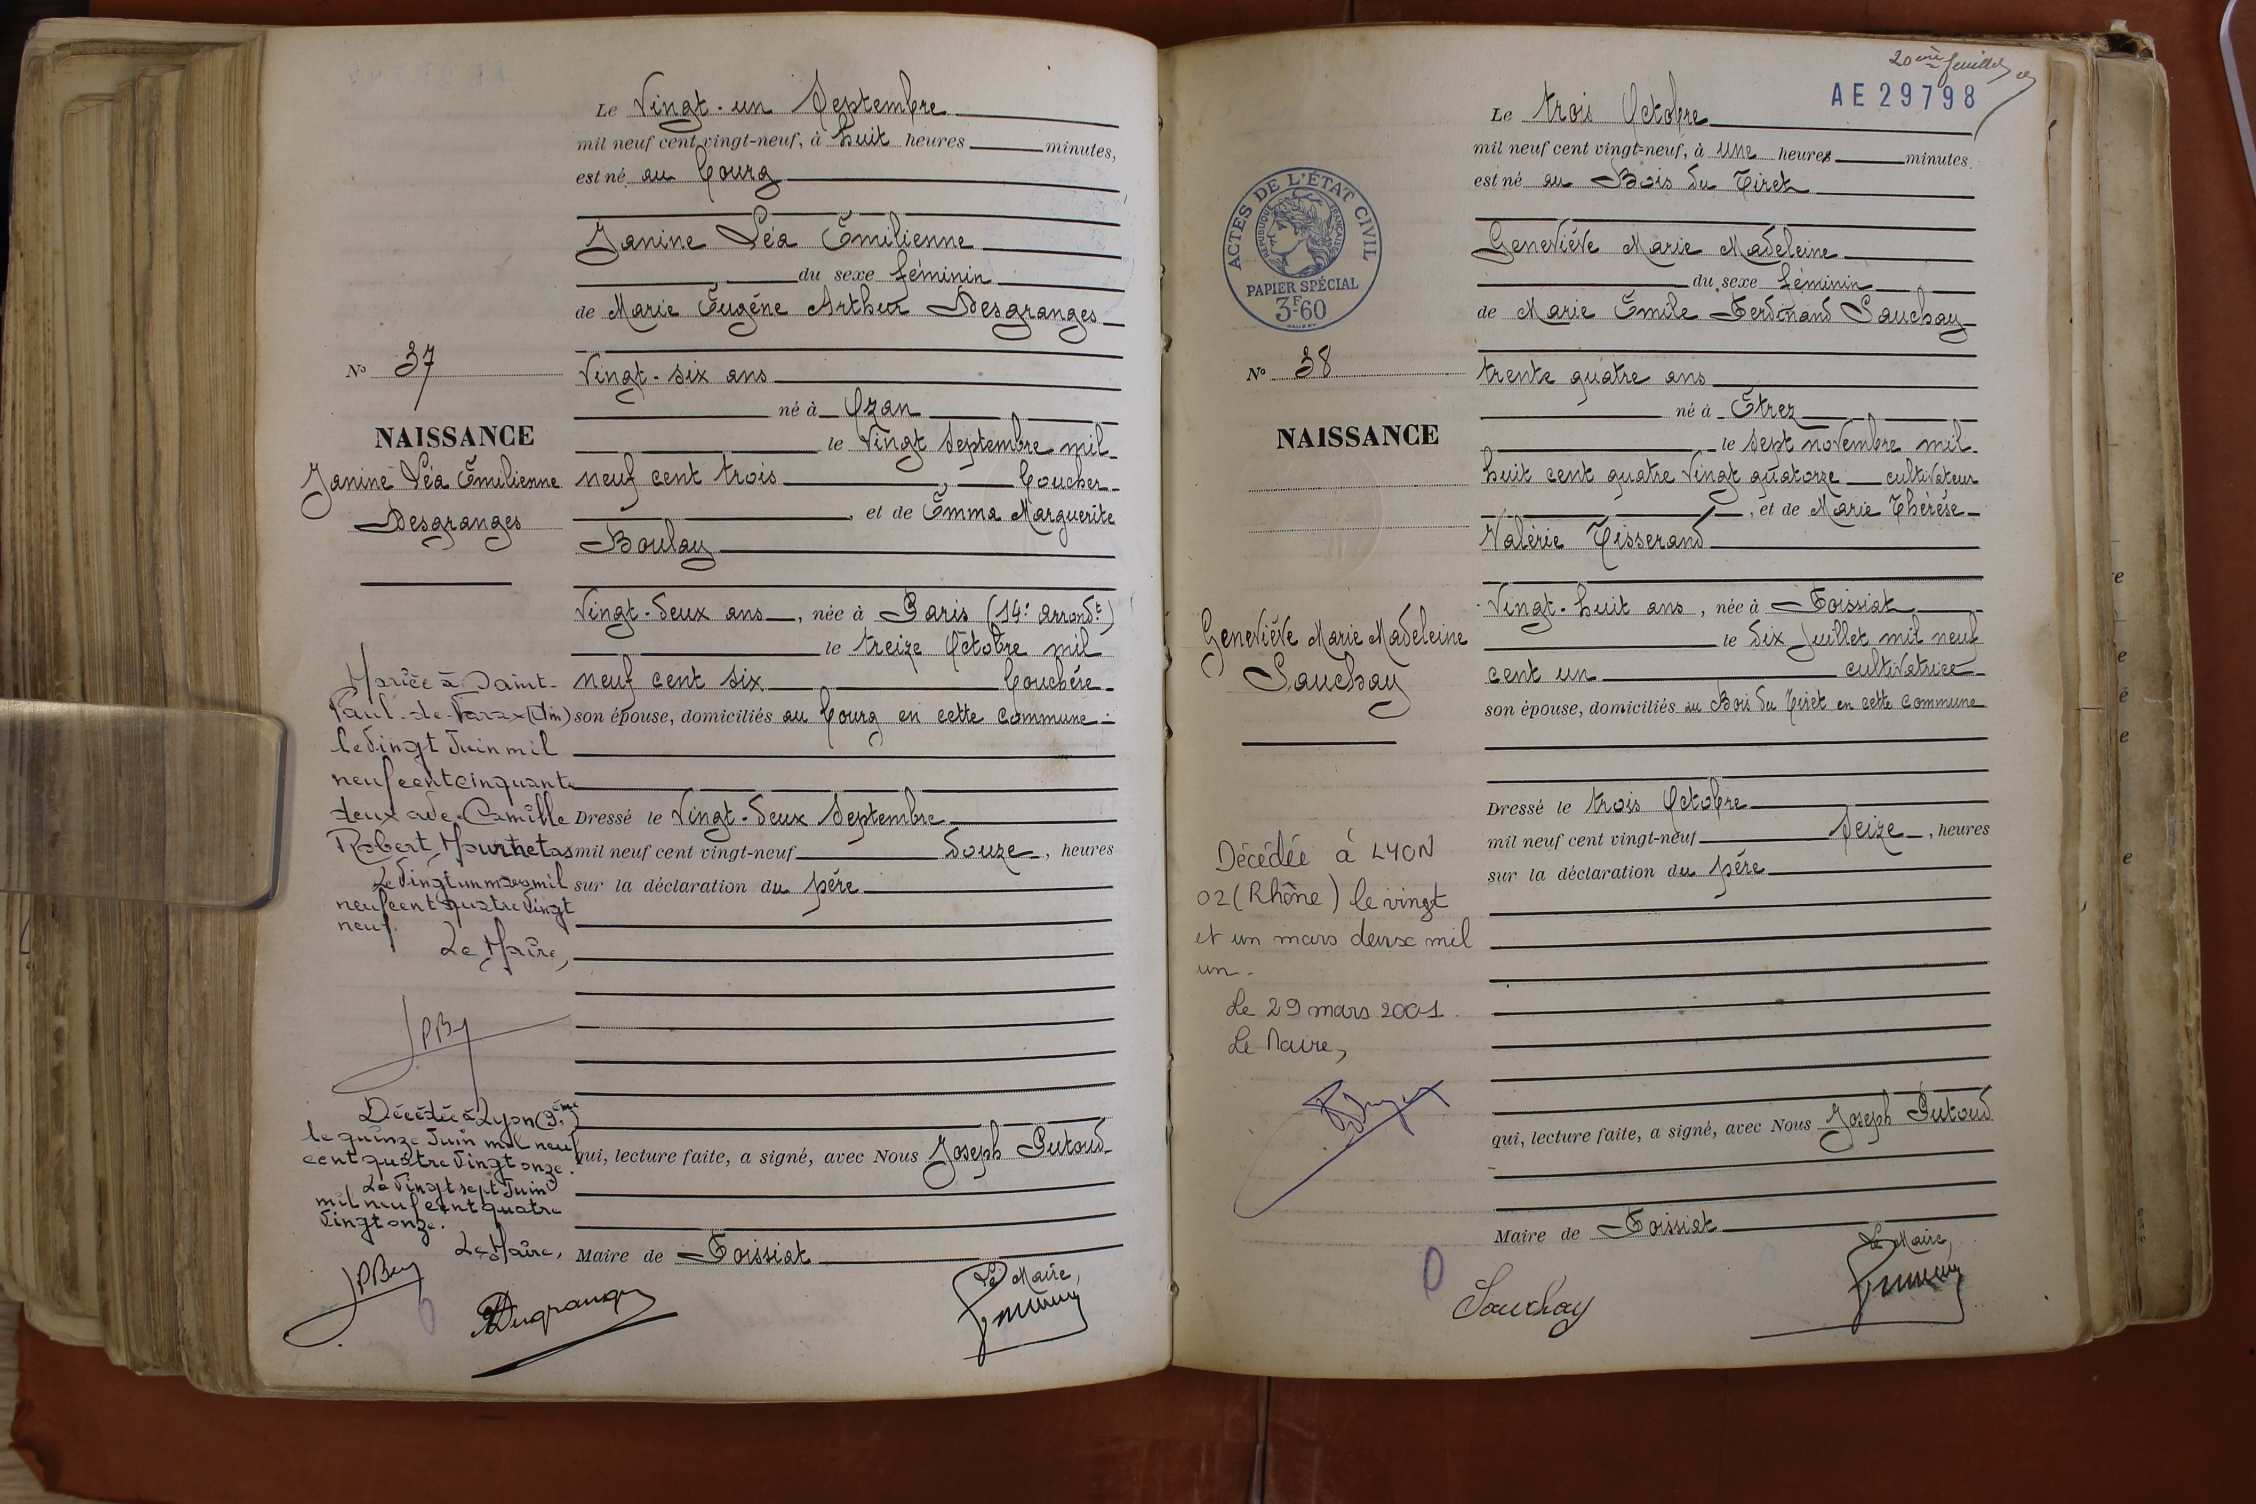 Le Vingt-un Septembre
mil neuf cent vingt-neuf, à huit heures minutes,
est né au Bourg
Janine Léa Émilienne
du sexe féminin
de Marie Eugène Arthur Desgranges
N° 37
Vingt-six ans
né à Ozan
NAISSANCE
le vingt Septembre mil
Janine Léa Émilienne
neuf cent trois, boucher
Desgranges
, et de Emma Marguerite
Boulay
Vingt-deux ans, née à Paris (14e arrondt)
le treize Octobre mil
neuf cent six bouchère
son épouse, domiciliés au bourg en cette commune.
Dressé le Vingt-deux Septembre
mil neuf cent vingt-neuf douze, heures
sur la déclaration du père
Mariée à Saint-
Paul-de-Varax (Ain)
le vingt Juin mil
neuf cent cinquante
deux avec Camille
Robert
Le vingt un mars mil
neuf cent quatre vingt
neuf.
Le Maire,
Décédée à Lyon (3ème)
le quinze Juin mil neuf
cent quatre vingt onze.
Le vingt sept Juin
mil neuf cent quatre
vingt onze.
Le Maire,
qui, lecture faite, a signé, avec Nous Joseph Putoud
Maire de Foissiat
Le Maire,
20ème feuillet
AE 29798
Le trois Octobre
mil neuf cent vingt-neuf, à une heure minutes
est né au Bois du Tiret
ACTES DE L'ÉTAT CIVIL
RÉPUBLIQUE FRANÇAISE
PAPIER SPÉCIAL
3F60
Geneviève Marie Madeleine
du sexe féminin
de Marie Émile Ferdinand Sauchay
N° 38
trente quatre ans
né à Étrez
NAISSANCE
le sept novembre mil
huit cent quatre vingt quatorze cultivateur
, et de Marie Thérèse
Valérie Tisserand
Vingt-huit ans, née à Foissiat
Geneviève Marie Madeleine
Sauchay
le dix Juillet mil neuf
cent un cultivatrice
son épouse, domiciliés au Bois du Tiret en cette commune
Dressé le trois Octobre
mil neuf cent vingt-neuf Seize, heures
sur la déclaration du père
Décédée à LYON
02 (Rhône) le vingt
et un mars deux mil
un.
Le 29 mars 2001.
Le Maire,
qui, lecture faite, a signé, avec Nous Joseph Putoud
Maire de Foissiat
Le Maire,
Sauchay